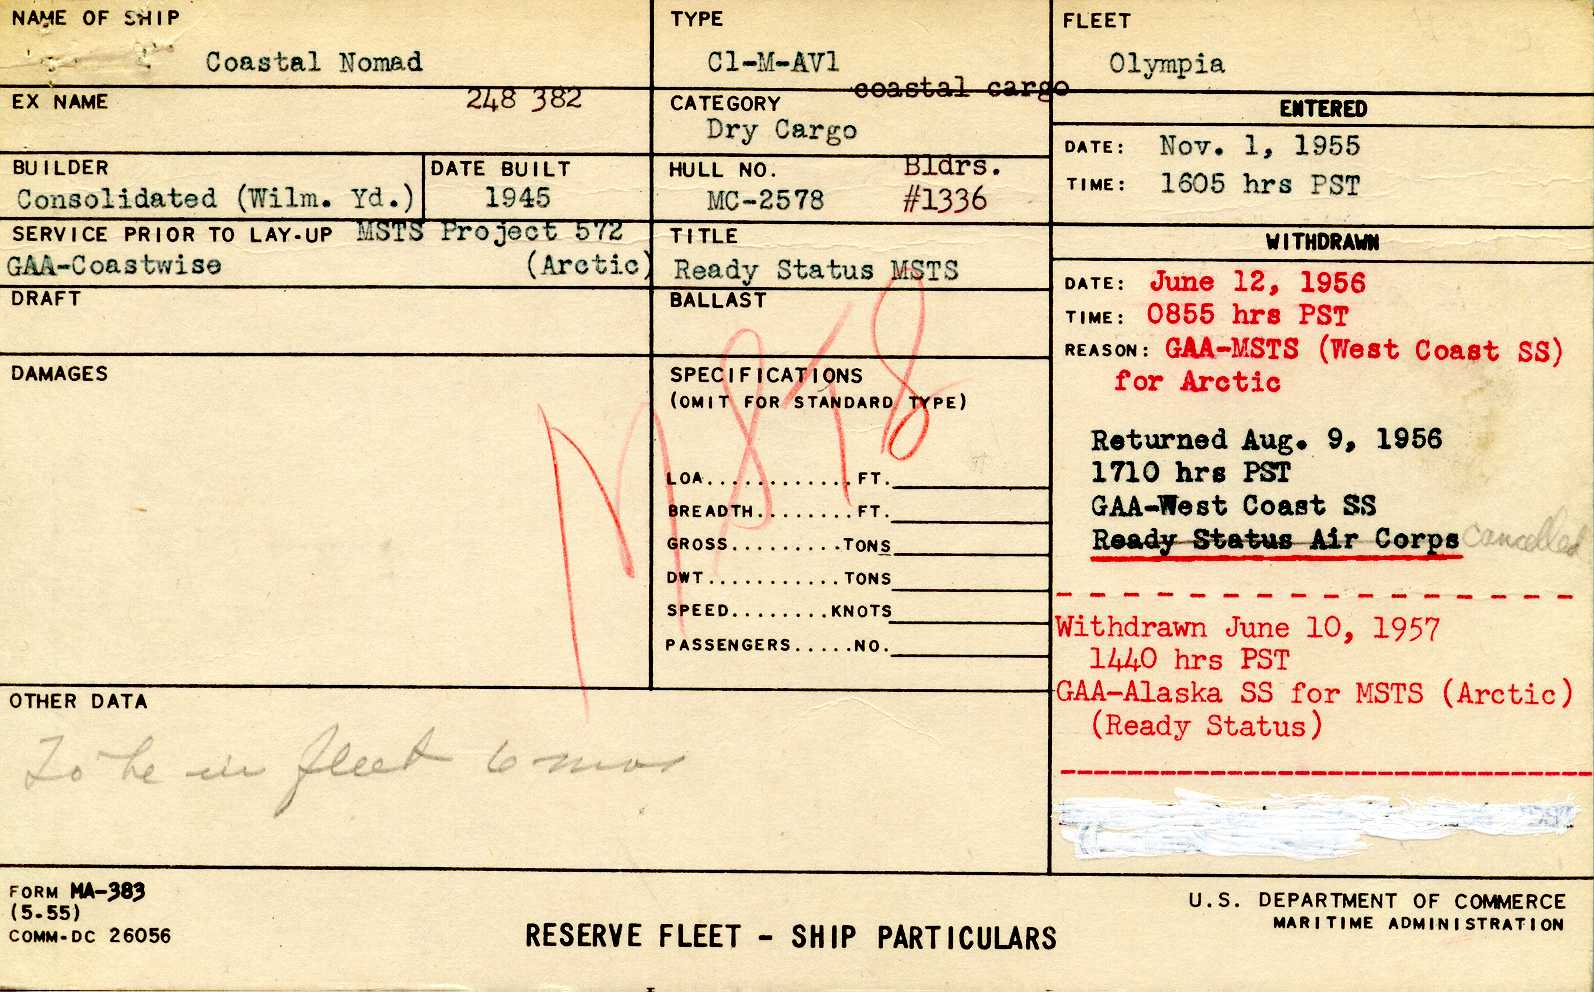 NAME OF SHIP
Coastal Nomad
TYPE
C1-M-AV1
coastal cargo
FLEET
Olympia
EX NAME
248 382
CATEGORY
Dry Cargo
ENTERED
DATE: Nov. 1, 1955
TIME: 1605 hrs PST
BUILDER
Consolidated (Wilm. Yd.)
DATE BUILT
1945
HULL NO.
MC-2578
Bldrs.
#1336
SERVICE PRIOR TO LAY-UP MSTS Project 572
GAA-Coastwise (Arctic)
TITLE
Ready Status MSTS
WITHDRAWN
DATE: June 12, 1956
TIME: 0855 hrs PST
REASON: GAA-MSTS (West Coast SS)
for Arctic
Returned Aug. 9, 1956
1710 hrs PST
GAA-West Coast SS
Ready Status Air Corps cancelled
Withdrawn June 10, 1957
1440 hrs PST
GAA-Alaska SS for MSTS (Arctic)
(Ready Status)
DRAFT
BALLAST
DAMAGES
SPECIFICATIONS
(OMIT FOR STANDARD TYPE)
LOA............FT.
BREADTH........FT.
GROSS.........TONS
DWT...........TONS
SPEED........KNOTS
PASSENGERS.....NO.
OTHER DATA
To be in fleet 6 mos
FORM MA-383
(5-55)
COMM-DC 26056
RESERVE FLEET - SHIP PARTICULARS
U.S. DEPARTMENT OF COMMERCE
MARITIME ADMINISTRATION